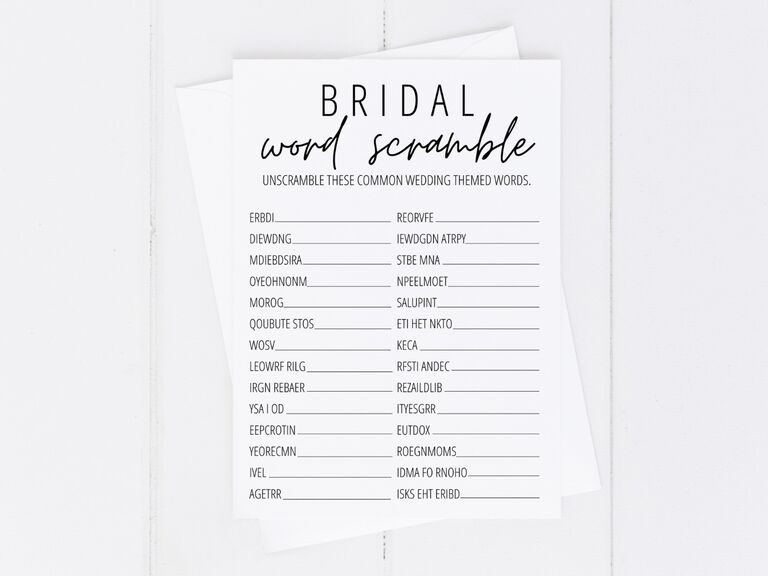 BRIDAL
word scramble
UNSCRAMBLE THESE COMMON WEDDING THEMED WORDS.
ERBDI
DIEWDNG
MDIEBDSIRA
OYEOHNONM
MOROG
QOUBUTE STOS
WOSV
LEOWRF RILG
IRGN REBAER
YSA I OD
EEPCROTIN
YEORECMN
IVEL
AGETRR
REORVFE
IEWDGDN ATRPY
STBE MNA
NPEELMOET
SALUPINT
ETI HET NKTO
KECA
RFSTI ANDEC
REZAILDLIB
ITYESGRR
EUTDOX
ROEGNMOMS
IDMA FO RNOHO
ISKS EHT ERIBD